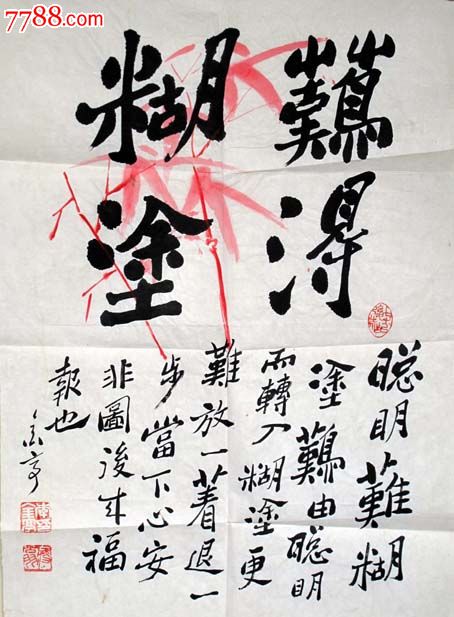 7788.com
難得
糊塗
聪明難糊
塗難由聪明
而轉入糊塗更
難放一着退一
步當下心安
非圖後来福
報也